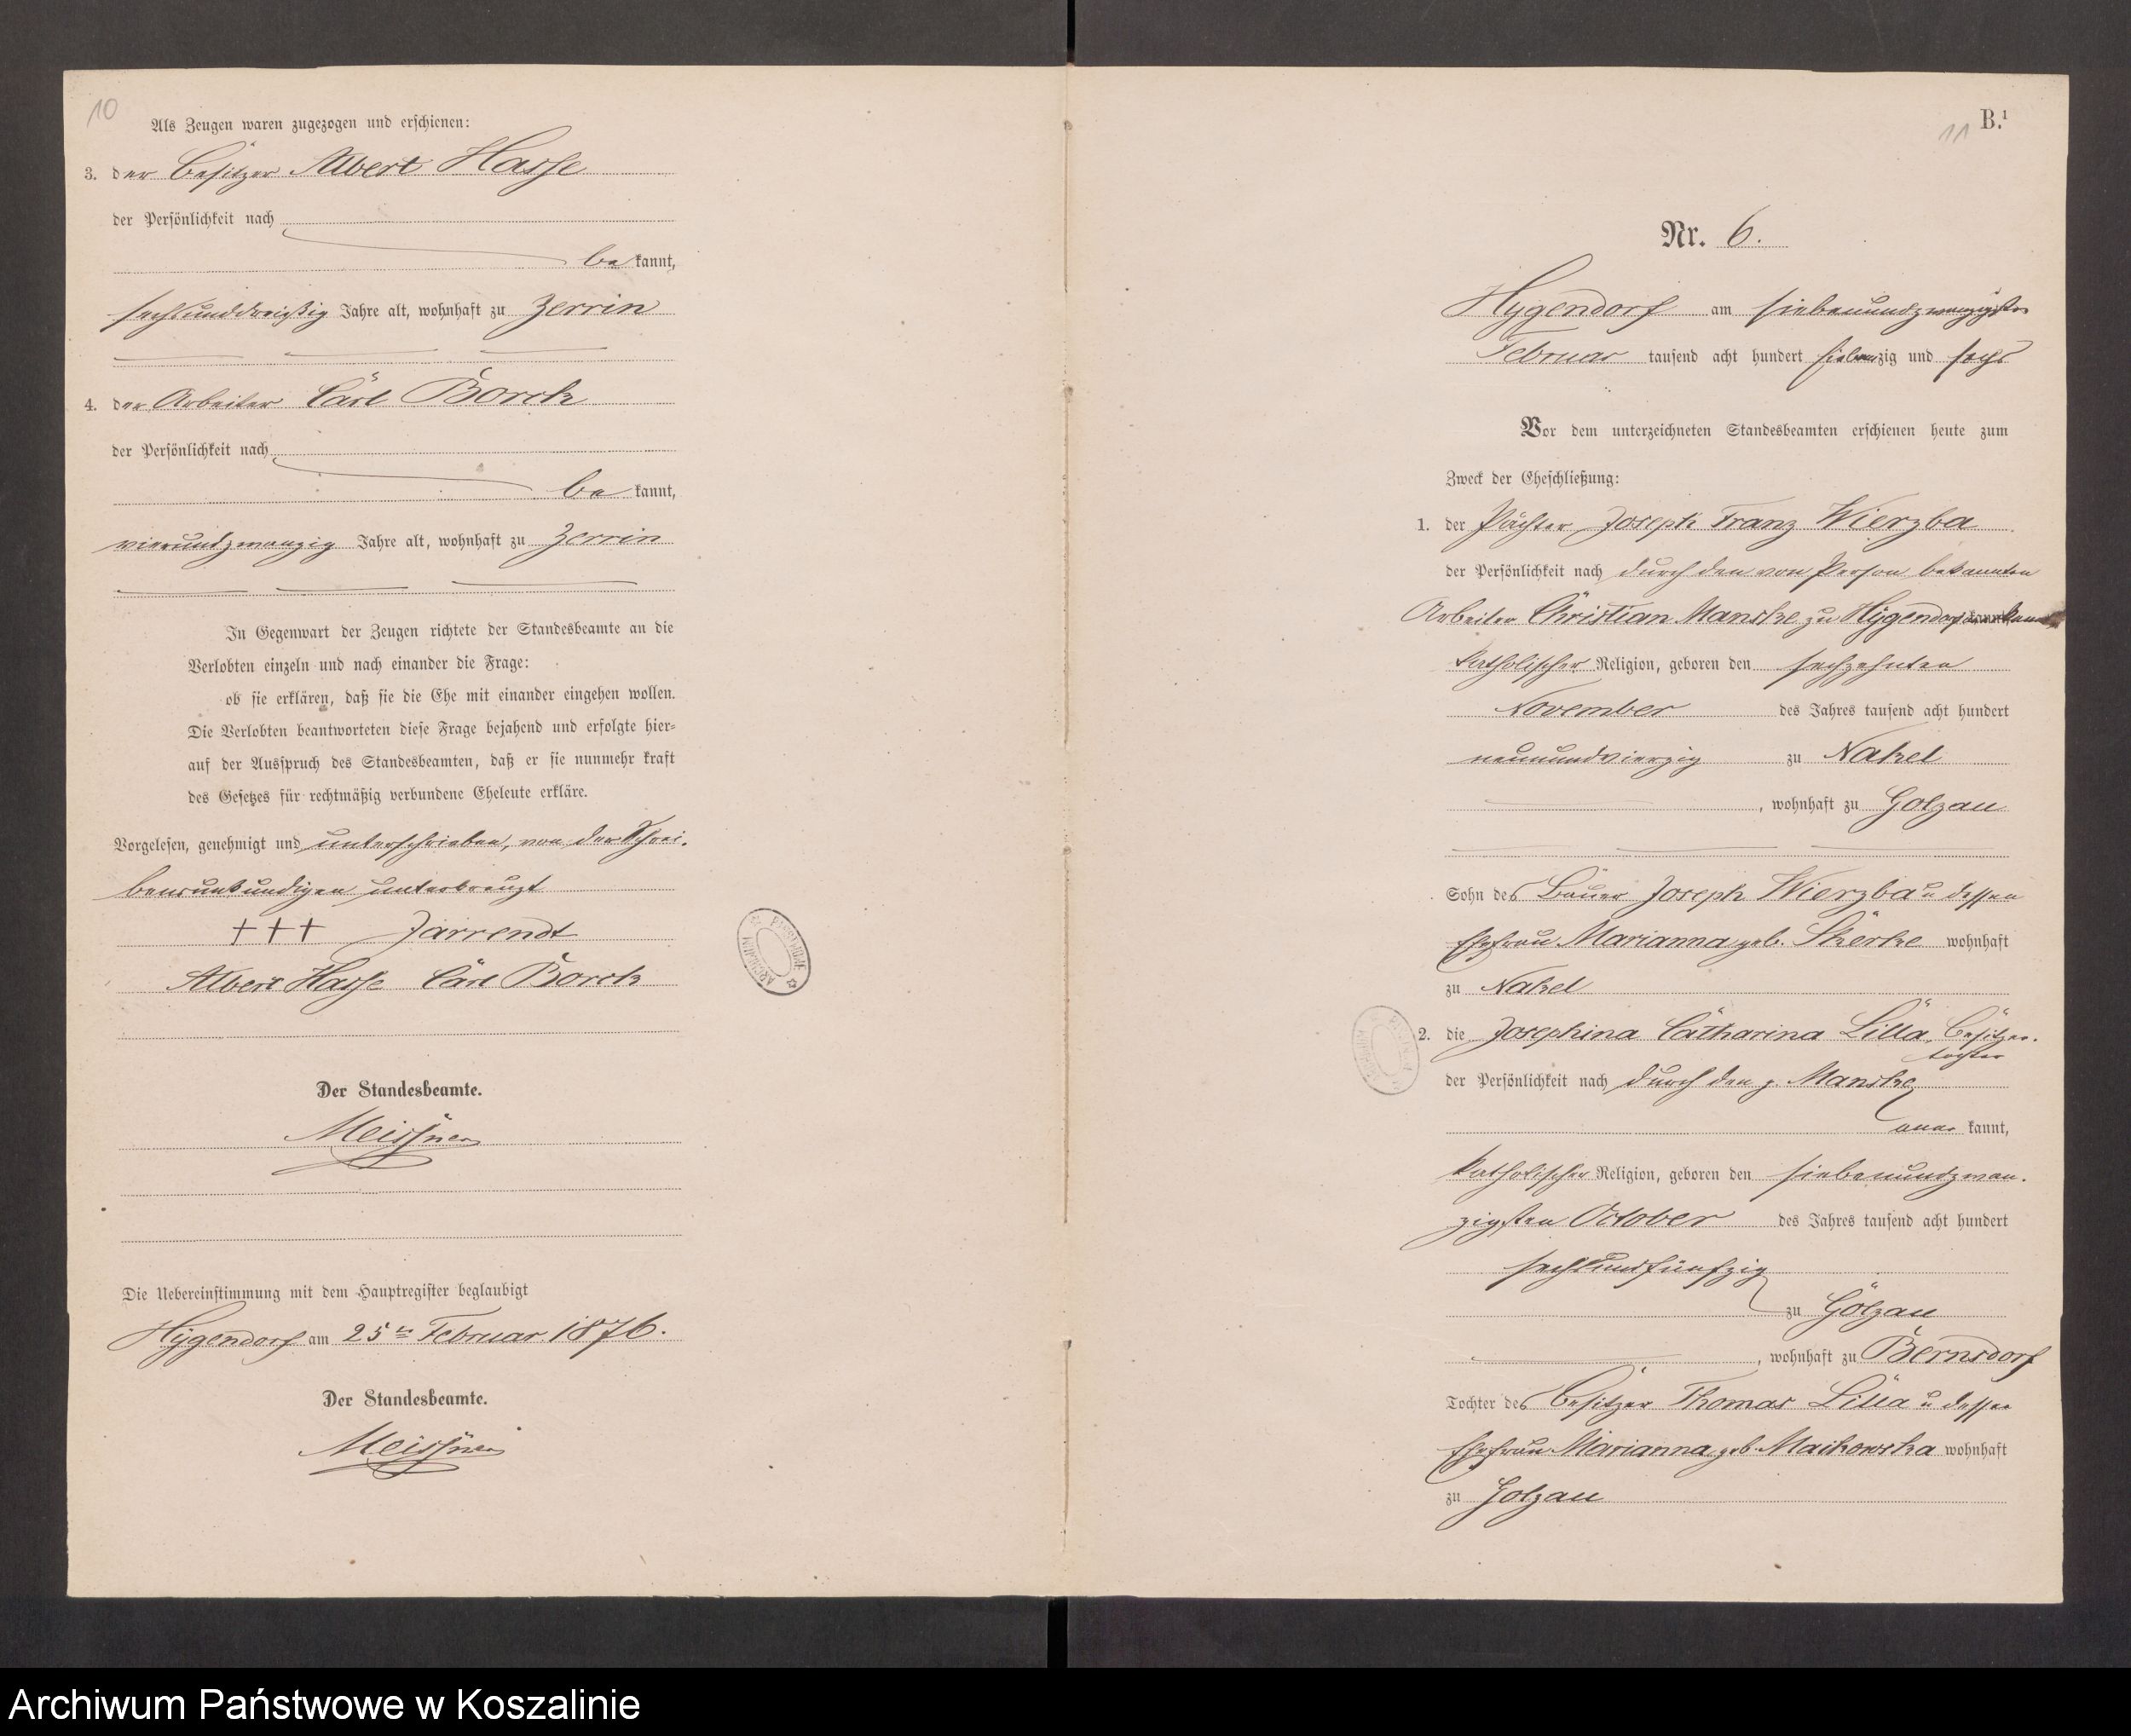 10
Als Zeugen waren zugezogen und erschienen:
3. der Besitzer Albert Hasse
der Persönlichkeit nach
be kannt,
sechsunddreißig Jahre alt, wohnhaft zu Zerrin
4. der Arbeiter Carl Borck
der Persönlichkeit nach
be kannt,
vierundzwanzig Jahre alt, wohnhaft zu Zerrin
In Gegenwart der Zeugen richtete der Standesbeamte an die
Verlobten einzeln und nach einander die Frage:
ob sie erklären, daß sie die Ehe mit einander eingehen wollen.
Die Verlobten beantworteten diese Frage bejahend und erfolgte hier=
auf der Ausspruch des Standesbeamten, daß er sie nunmehr kraft
des Gesetzes für rechtmäßig verbundene Eheleute erkläre.
Vorgelesen, genehmigt und unterschrieben, von der Schrei-
bensunkundigen unterkreuzt
+++ Jarrendt
Albert Hasse Carl Borck
Der Standesbeamte.
Meissner
Die Uebereinstimmung mit dem Hauptregister beglaubigt
Hygendorf am 25ten Februar 1876.
Der Standesbeamte.
Meissner
ARCHIWUM PAŃSTWOWE
11
B.¹
Nr. 6.
Hygendorf am siebenundzwanzigsten
Februar tausend acht hundert siebenzig und sechs
Vor dem unterzeichneten Standesbeamten erschienen heute zum
Zweck der Eheschließung:
1. der Pächter Joseph Franz Wierzba
der Persönlichkeit nach durch den von Person bekannten
Arbeiter Christian Manske zu Hygendorf
katholischer Religion, geboren den sechzehnten
November des Jahres tausend acht hundert
neunundvierzig zu Nakel
, wohnhaft zu Golzau
Sohn des Bauer Joseph Wierzba u dessen
Ehefrau Marianna geb. Skerke wohnhaft
zu Nakel
2. die Josephina Catharina Lilla, Besitzer-
tochter
der Persönlichkeit nach durch den p. Manske
aner kannt,
katholischer Religion, geboren den siebenundzwan-
zigsten October des Jahres tausend acht hundert
sechsundfünfzig
zu Golzau
, wohnhaft zu Bernsdorf
Tochter des Besitzer Thomas Lilla u dessen
Ehefrau Marianna geb. Maikowska wohnhaft
zu Golzau
Archiwum Państwowe w Koszalinie